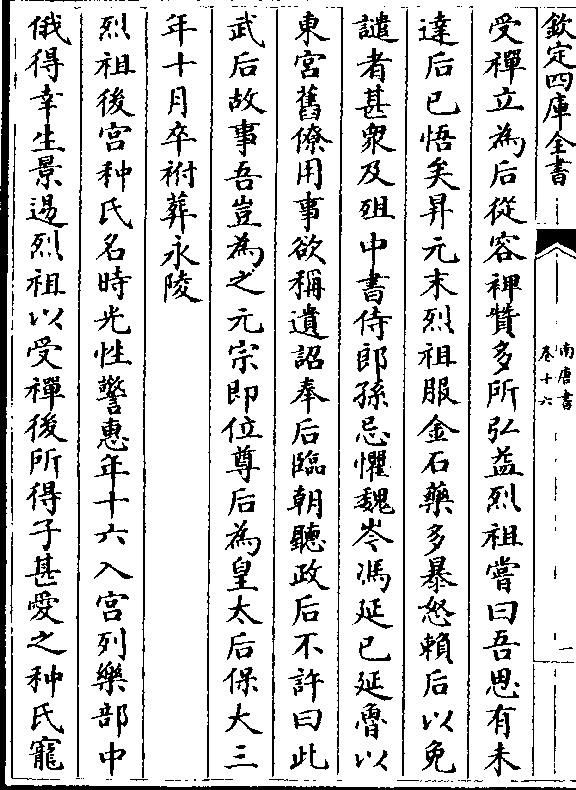 欽定四庫全書
南唐書
卷十六
一
受禪立為后從容裨贊多所弘益烈祖嘗曰吾思有未
達后已悟矣昇元末烈祖服金石藥多暴怒賴后以免
譴者甚衆及殂中書侍郎孫忌懼魏岑馮延巳延魯以
東宮舊僚用事欲稱遺詔奉后臨朝聽政后不許曰此
武后故事吾豈為之元宗即位尊后為皇太后保大三
年十月卒祔葬永陵
烈祖後宮种氏名時光性警惠年十六入宮列樂部中
俄得幸生景逷烈祖以受禪後所得子甚愛之种氏寵